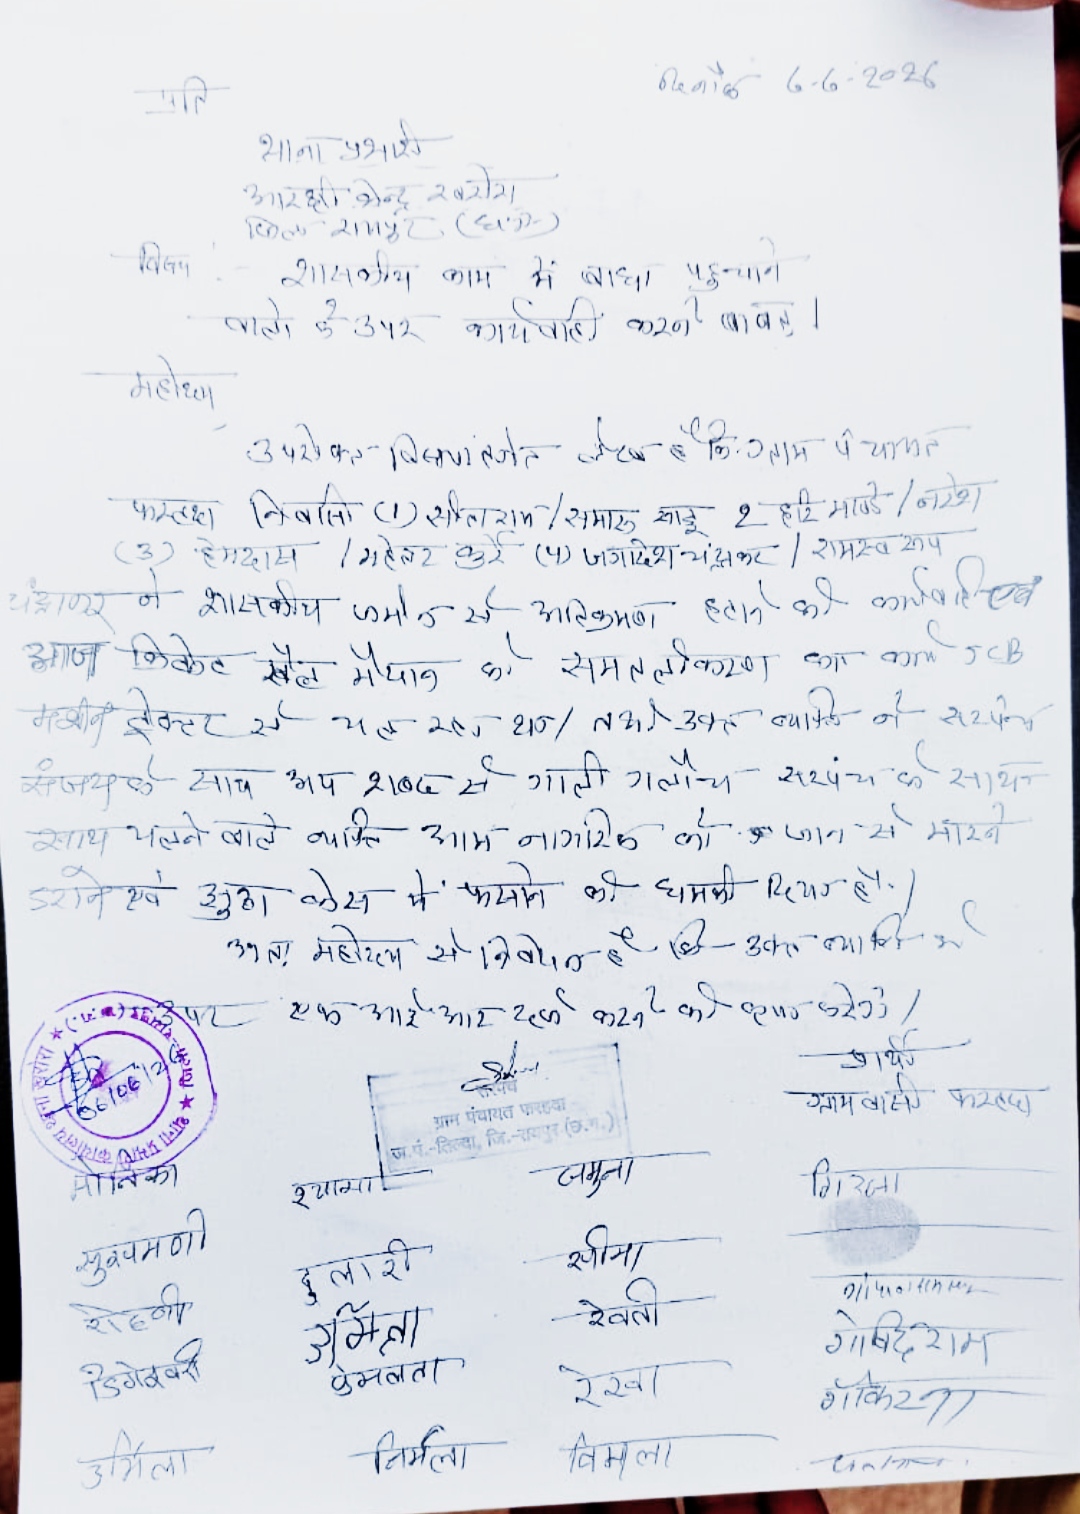 दिनाँक 6-6-2026
प्रति
थाना प्रभारी
आरक्षी केन्द्र खरोरा
जिला रायपुर (छ.ग.)
विषय :- शासकीय काम में बाधा पहुन्चाने
वालो के उपर कार्यवाही करने बाबत् ।
महोदय,
उपरोक्त विषयांतर्गत लेख है कि ग्राम पंचायत
फरहदा निवासी (1) सीताराम / समारू साहू 2 हरि मारकंडे / नरेश
(3) हेमदास / महेतर कुर्रे (4) जगादिश चंद्राकर / रामस्वरूप
चंद्राकर ने शासकीय जमीन से अतिक्रमण हटाने की कार्यवाहि एवं
आज क्रिकेट खेल मैदान को समतलीकरण का कार्य JCB
मशीन ट्रेक्टर से चल रहा था / तभी उक्त व्यक्ति ने सरपंच
संजय के साथ अप शब्द से गाली गलौच सरपंच के साथ
साथ चलने वाले व्यक्ति आम नागरिक को जान से मारने
डराने एवं झुठा केस में फसाने की धमकी दिया है। /
अतः महोदय से निवेदन है कि उक्त व्यक्ति के
उपर एफ आई आर दर्ज करने की कृपा करेंगे /
प्रार्थी
ग्रामवासी फरहदा
06/06/26
सरपंच
ग्राम पंचायत फरहदा
ज.पं.-तिल्दा, जि.-रायपुर (छ.ग.)
मोनिका श्यामा जमुना गिरजा
सुखमणी दुलारी सीमा
रोहणी उर्मिला रेवती गोविंदराम
डिगेश्वरी प्रेमलता रेखा
उर्मिला निर्मला विमला